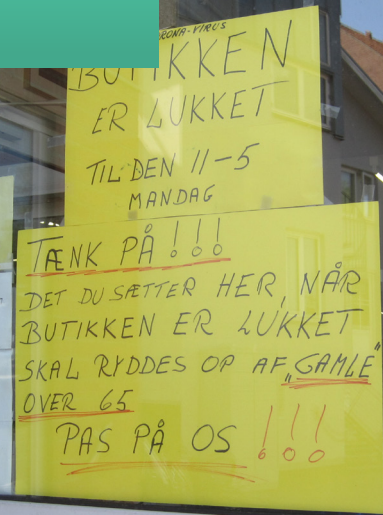 CORONA-VIRUS
BUTIKKEN
ER LUKKET
TIL DEN 11-5
MANDAG
TÆNK PÅ!!!
DET DU SÆTTER HER, NÅR
BUTIKKEN ER LUKKET
SKAL RYDDES OP AF „GAMLE"
OVER 65
PAS PÅ OS !!!